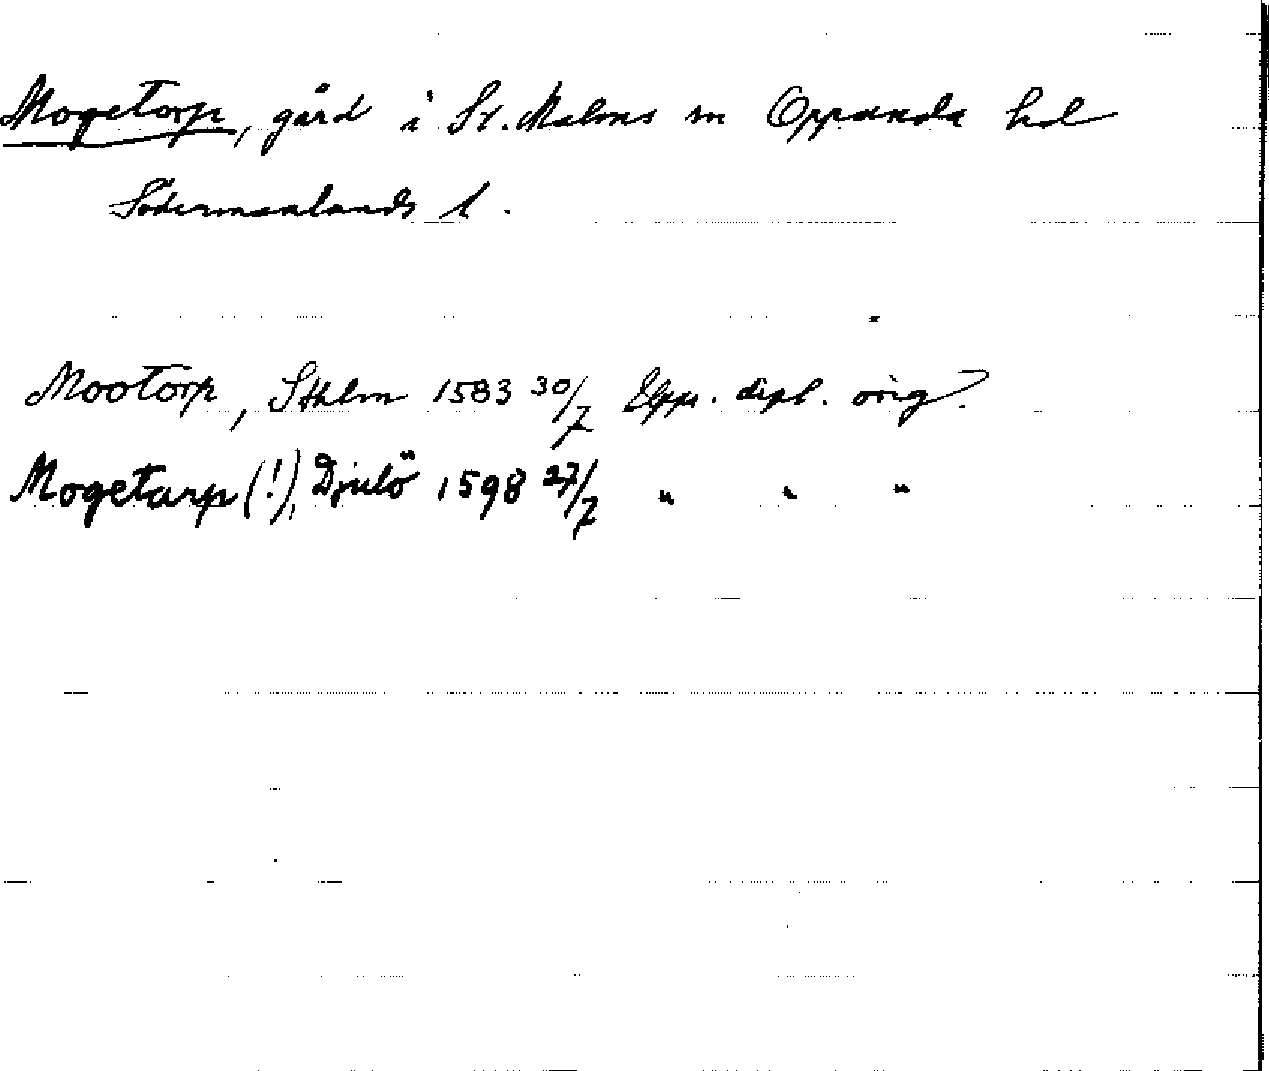 Mogetorp, gård i St. Malms sn Oppunda hd
Södermanlands l.
Mootorp, Sthlm 1583 30/7 Upps. dipl. orig.
Mogetarp (!), Djulö 1598 27/7 " " "